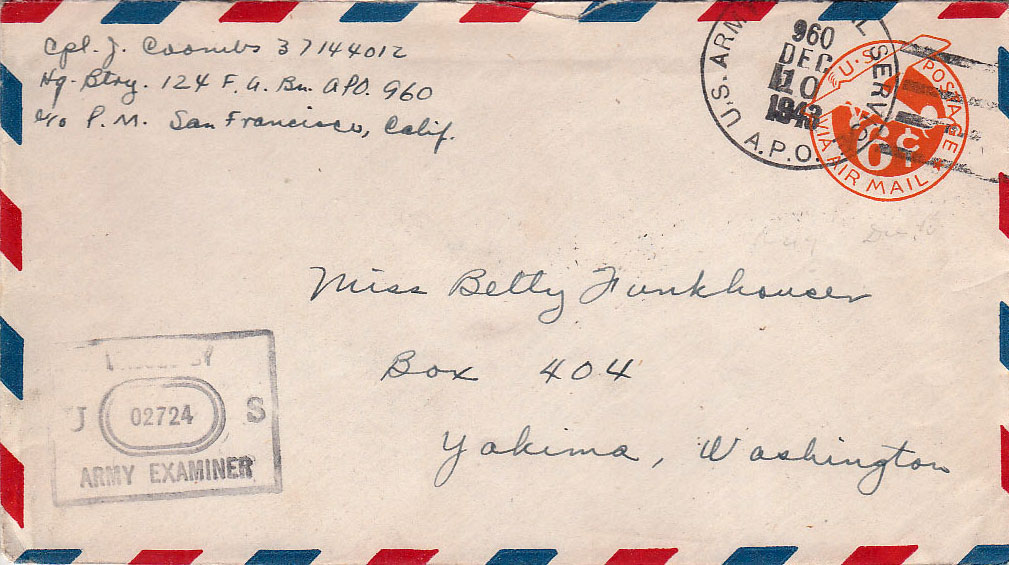 Cpl. J. Coombs 37144012
Hq. Btry. 124 F. A. Bn. APO. 960
c/o P. M. San Francisco, Calif.
U.S. ARMY POSTAL SERVICE
A.P.O.
960
DEC
10
1943
U.S. POSTAGE
6c
VIA AIR MAIL
Miss Betty Funkhouser
Box 404
Yakima, Washington
U S
02724
ARMY EXAMINER